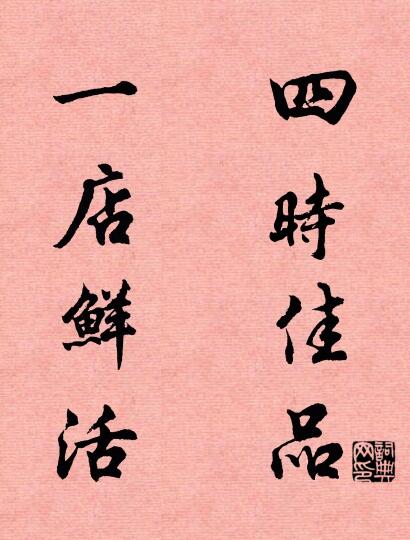 四時佳品
一店鮮活
詞典网印